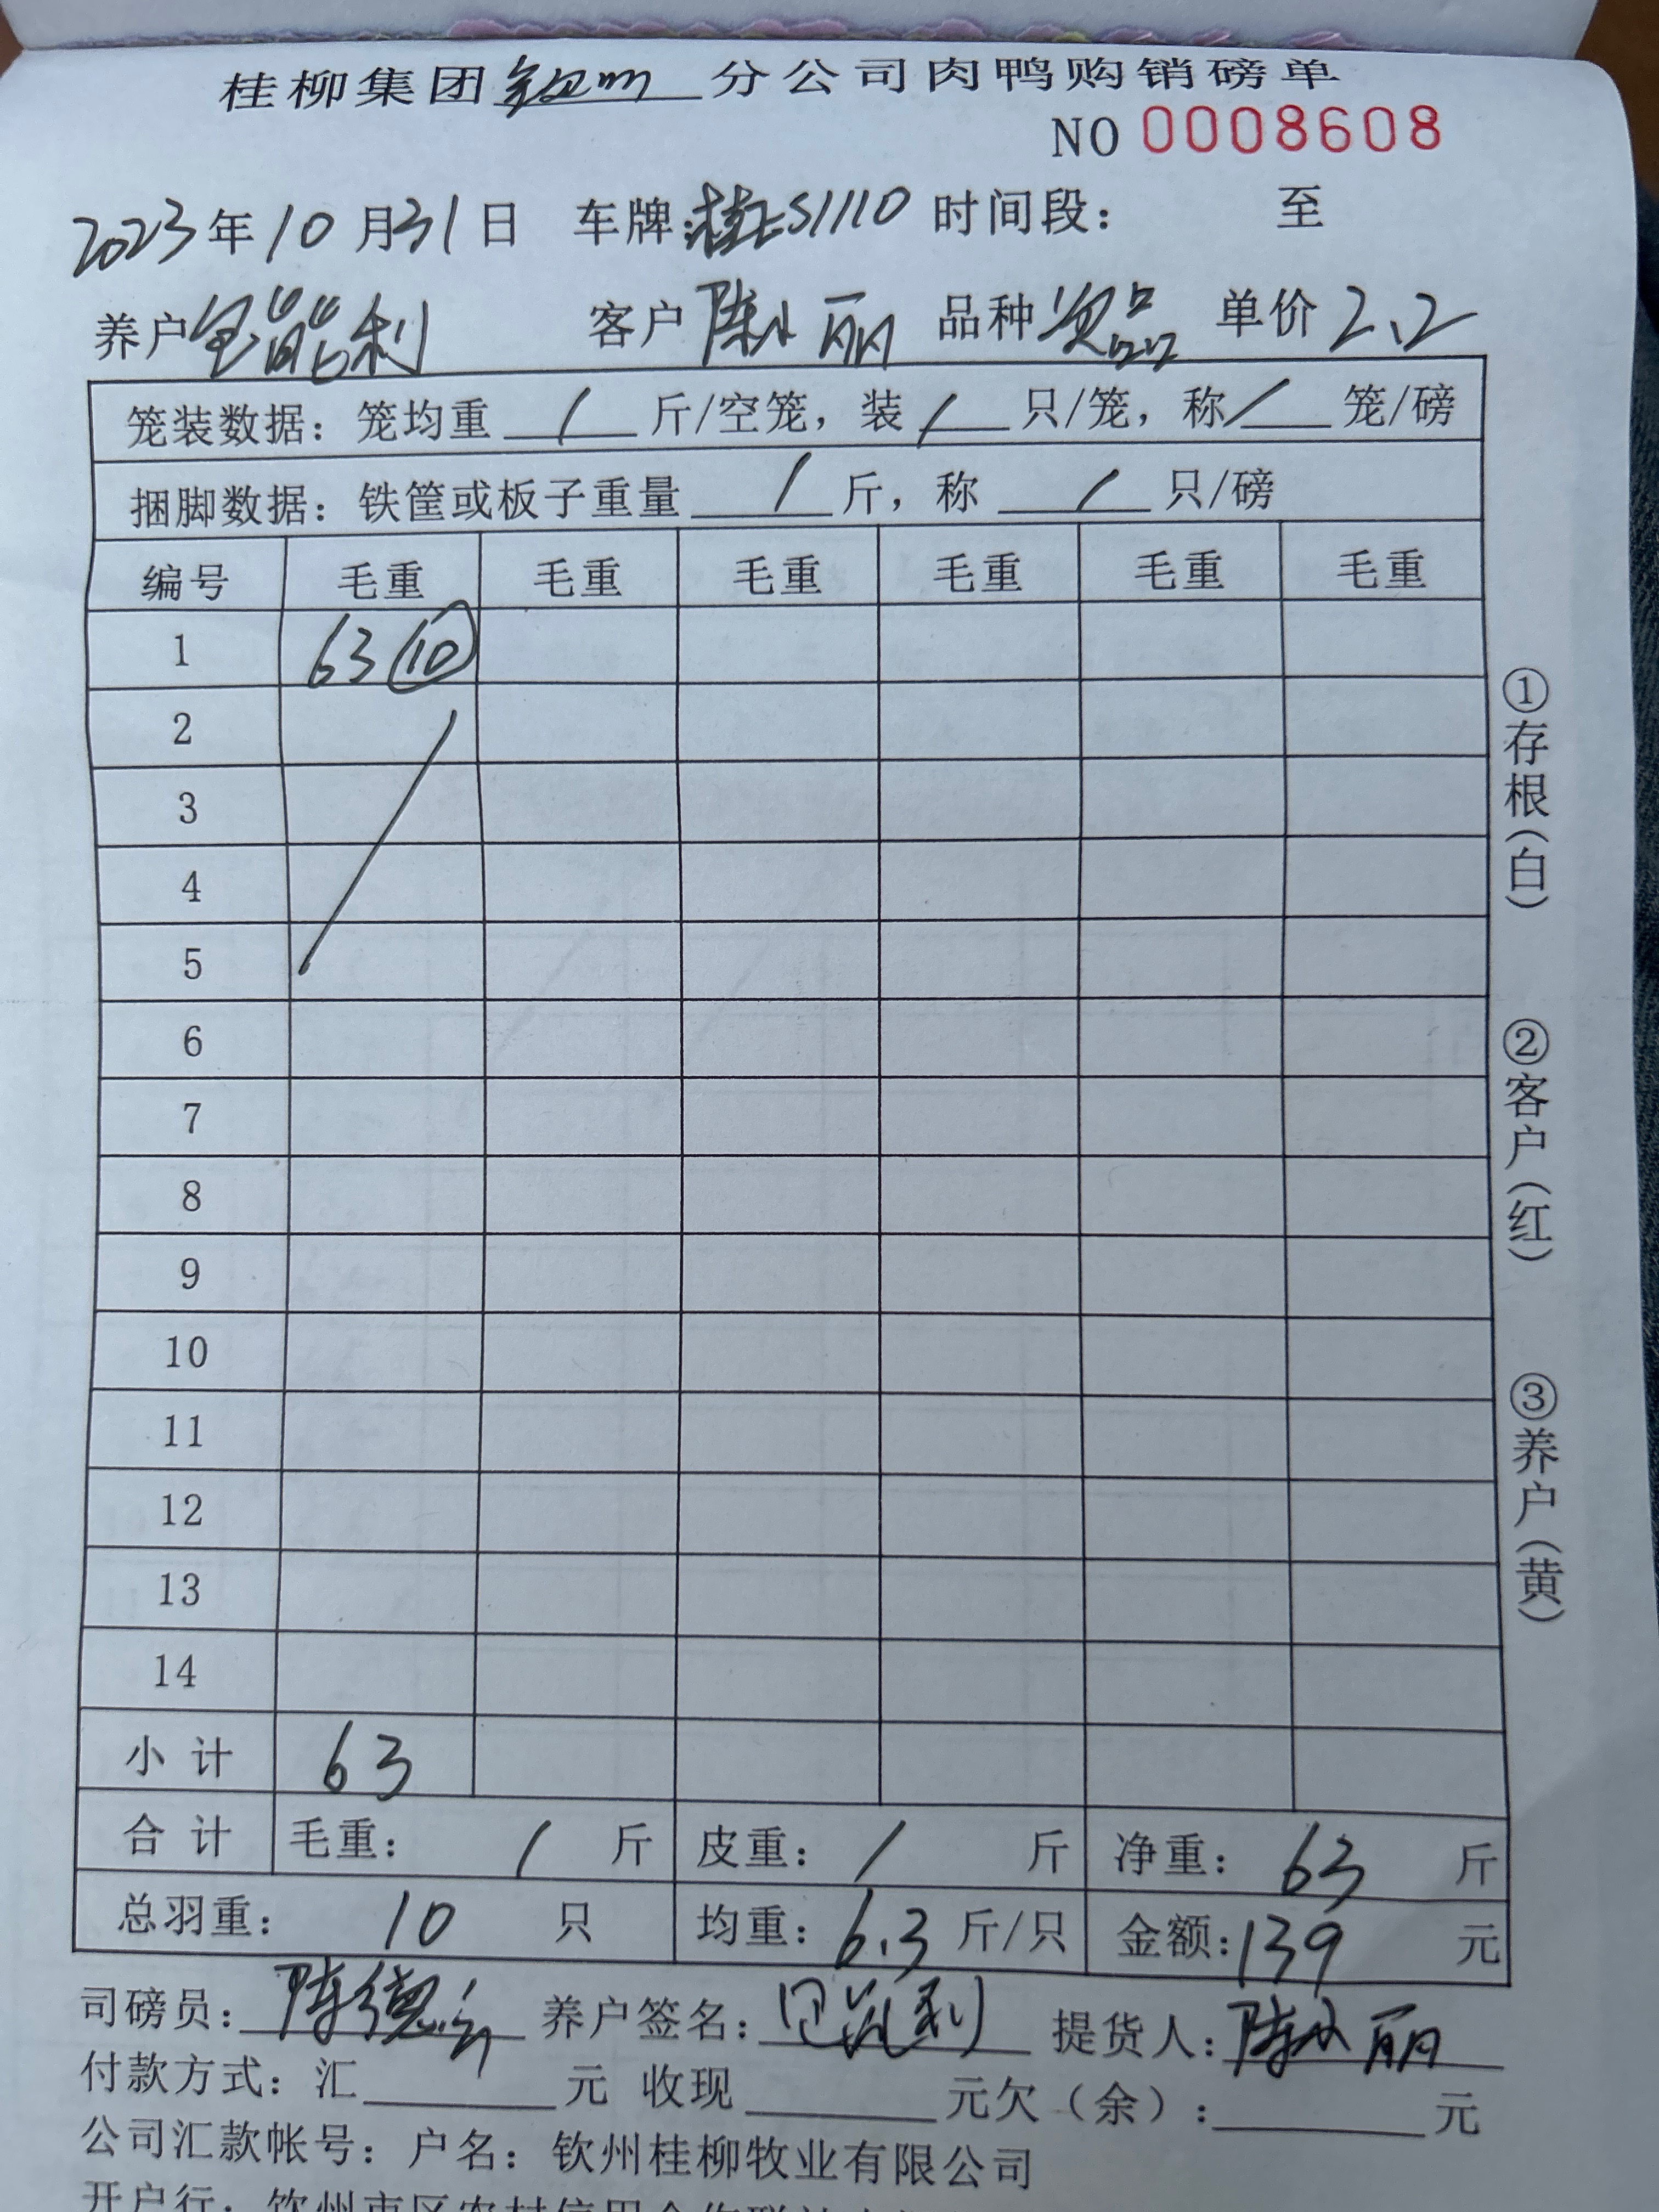 桂柳集团钦州分公司肉鸭购销磅单
NO 0008608
2023年10月31日 车牌:桂ES1110 时间段: 至
养户 利 客户 陈小丽 品种 次品 单价 2.2
笼装数据: 笼均重 / 斤/空笼, 装 / 只/笼, 称 / 笼/磅
捆脚数据: 铁筐或板子重量 / 斤, 称 / 只/磅
编号 毛重 毛重 毛重 毛重 毛重 毛重
1 63 ⑩
2
3
4
5
6
7
8
9
10
11
12
13
14
小计 63
合计 毛重: / 斤 皮重: / 斤 净重: 63 斤
总羽重: 10 只 均重: 6.3 斤/只 金额: 139 元
司磅员: 陈德 养户签名: 利 提货人: 陈小丽
付款方式: 汇 元 收现 元欠(余): 元
公司汇款帐号: 户名: 钦州桂柳牧业有限公司
开户行: 钦州市区农村信用合作联社
①存根(白)
②客户(红)
③养户(黄)